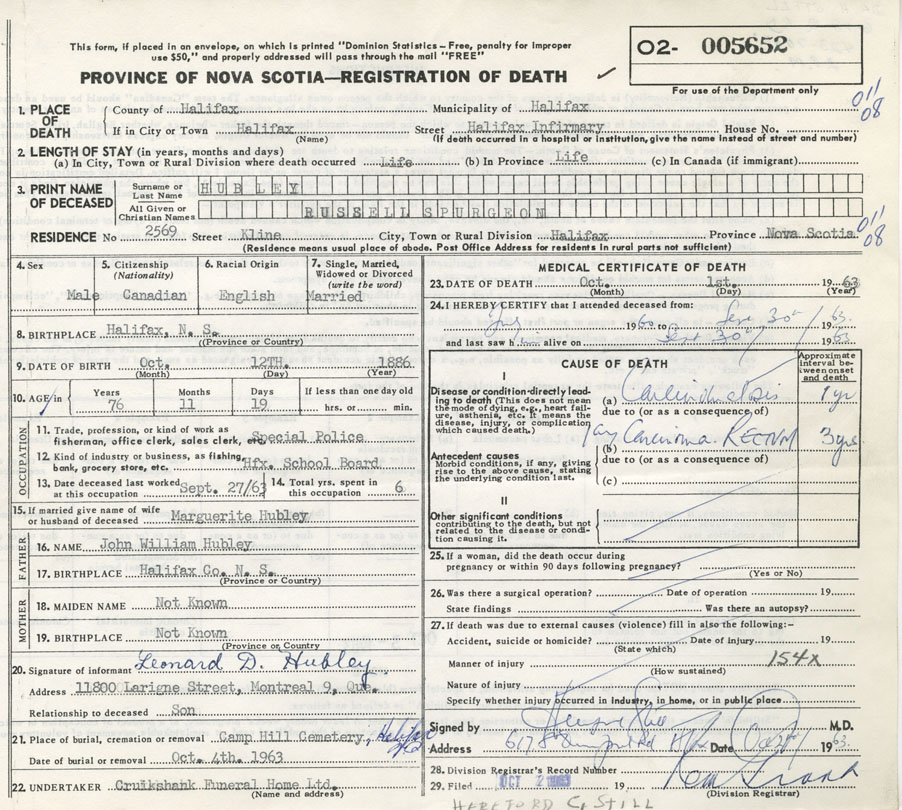 This form, if placed in an envelope, on which is printed "Dominion Statistics – Free, penalty for improper
use $50," and properly addressed will pass through the mail "FREE"
PROVINCE OF NOVA SCOTIA—REGISTRATION OF DEATH ✓
02- 005652
For use of the Department only
1. PLACE OF DEATH
County of Halifax Municipality of Halifax
011
08
If in City or Town Halifax Street Halifax Infirmary House No.
(Name) (If death occurred in a hospital or institution, give the name instead of street and number)
2. LENGTH OF STAY (in years, months and days)
(a) In City, Town or Rural Division where death occurred Life (b) In Province Life (c) In Canada (if immigrant)
3. PRINT NAME OF DECEASED
Surname or Last Name HUBLEY
All Given or Christian Names RUSSELL SPURGEON
RESIDENCE No 2569 Street Kline City, Town or Rural Division Halifax Province Nova Scotia
011
08
(Residence means usual place of abode. Post Office Address for residents in rural parts not sufficient)
4. Sex
Male
5. Citizenship
(Nationality)
Canadian
6. Racial Origin
English
7. Single, Married,
Widowed or Divorced
(write the word)
Married
8. BIRTHPLACE Halifax, N. S.
(Province or Country)
9. DATE OF BIRTH Oct. 12TH. 1886
(Month) (Day) (Year)
10. AGE in
Years Months Days If less than one day old
76 11 19 hrs. or min.
OCCUPATION
11. Trade, profession or kind of work as
fisherman, office clerk, sales clerk, etc. Special Police
12. Kind of industry or business, as fishing,
bank, grocery store, etc. Hfx. School Board
13. Date deceased last worked
at this occupation Sept. 27/63
14. Total yrs. spent in
this occupation 6
15. If married give name of wife
or husband of deceased Marguerite Hubley
FATHER
16. NAME John William Hubley
17. BIRTHPLACE Halifax Co. N. S.
(Province or Country)
MOTHER
18. MAIDEN NAME Not Known
19. BIRTHPLACE Not Known
(Province or Country)
20. Signature of informant Leonard D. Hubley
Address 11800 Larigne Street, Montreal 9, Que.
Relationship to deceased Son
21. Place of burial, cremation or removal Camp Hill Cemetery, Halifax
Date of burial or removal Oct. 4th. 1963
22. UNDERTAKER Cruikshank Funeral Home Ltd.
(Name and address)
MEDICAL CERTIFICATE OF DEATH
23. DATE OF DEATH Oct. 1st. 1963
(Month) (Day) (Year)
24. I HEREBY CERTIFY that I attended deceased from:
July 1960 to Sept 30 1963.
and last saw h alive on Sept 30 1963
CAUSE OF DEATH
Approximate
interval be-
tween onset
and death
I
Disease or condition directly lead-
ing to death (This does not mean
the mode of dying, e.g., heart fail-
ure, asthenia, etc. It means the
disease, injury, or complication
which caused death.)
(a) 1 yr
due to (or as a consequence of)
(b) Carcinoma RECTUM 3 yrs.
due to (or as a consequence of)
Antecedent causes
Morbid conditions, if any, giving
rise to the above cause, stating
the underlying condition last.
(c)
II
Other significant conditions
contributing to the death, but not
related to the disease or condi-
tion causing it.
25. If a woman, did the death occur during
pregnancy or within 90 days following pregnancy?
(Yes or No)
26. Was there a surgical operation? Date of operation 19
State findings Was there an autopsy?
27. If death was due to external causes (violence) fill in also the following:–
Accident, suicide or homicide? Date of injury 19
(State which)
Manner of injury 154X
(How sustained)
Nature of injury
Specify whether injury occurred in industry, in home, or in public place
Signed by M.D.
Address Date Oct 1 1963.
28. Division Registrar's Record Number
29. Filed OCT 2 1963 19
(Division Registrar)
HEREFORD C. STILL